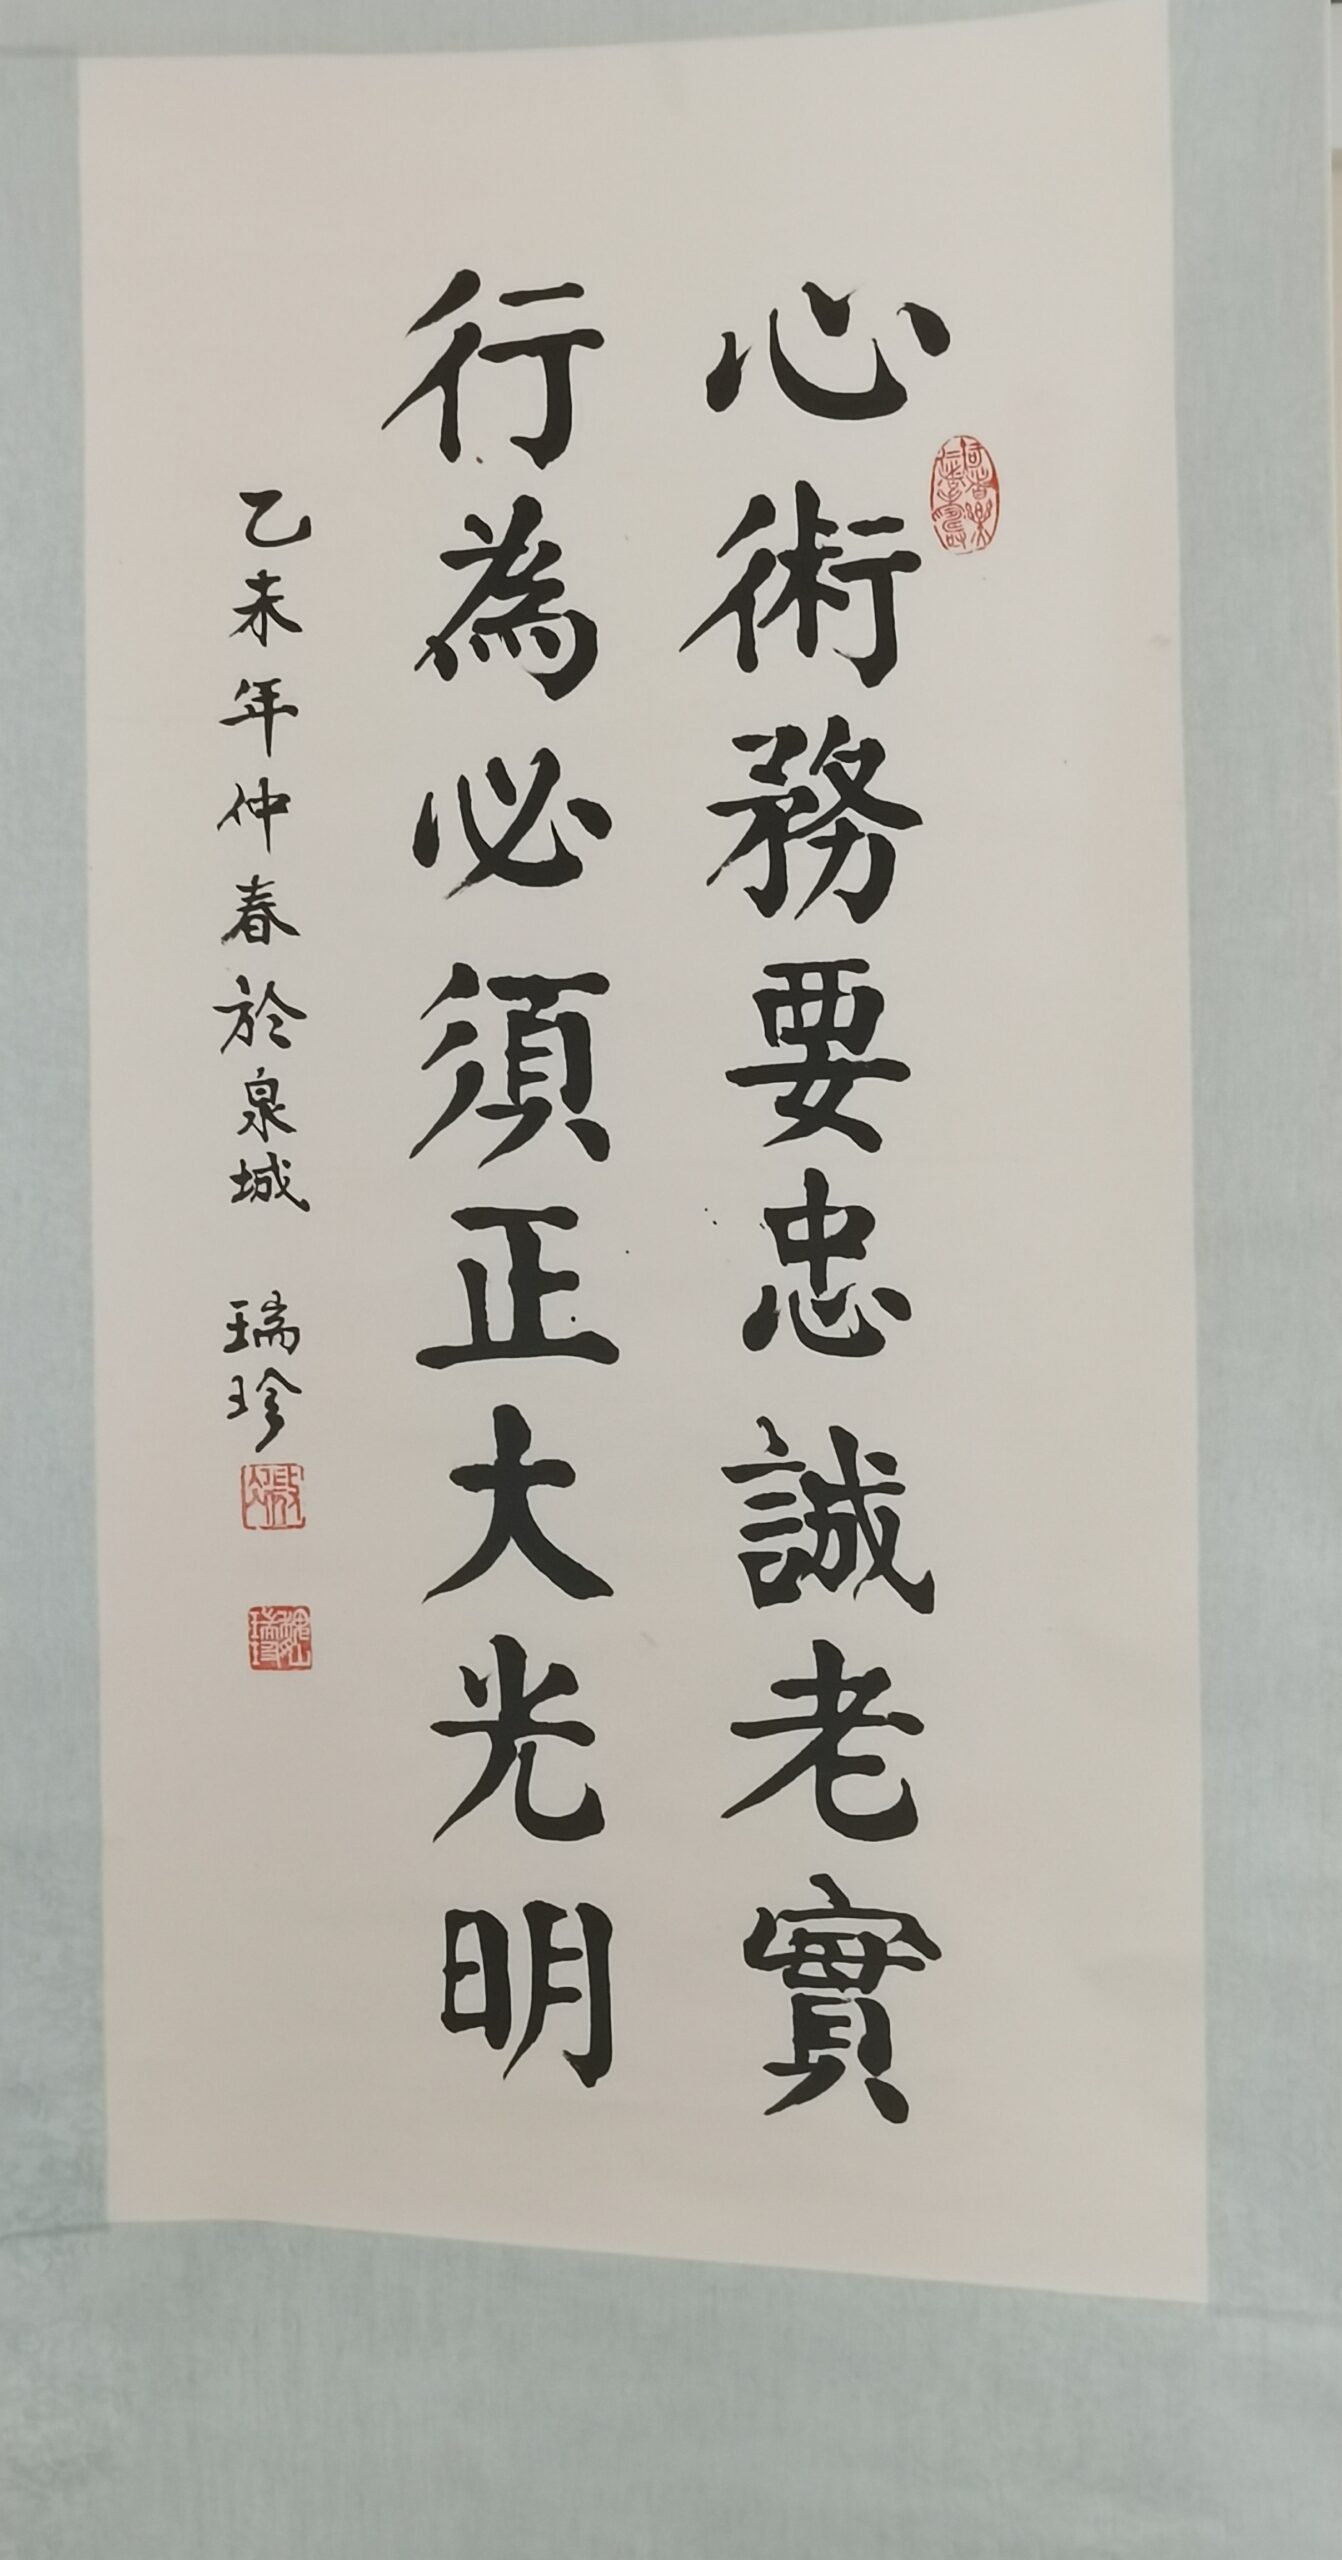 心術務要忠誠老實
行為必須正大光明
乙未年仲春於泉城 瑞珍